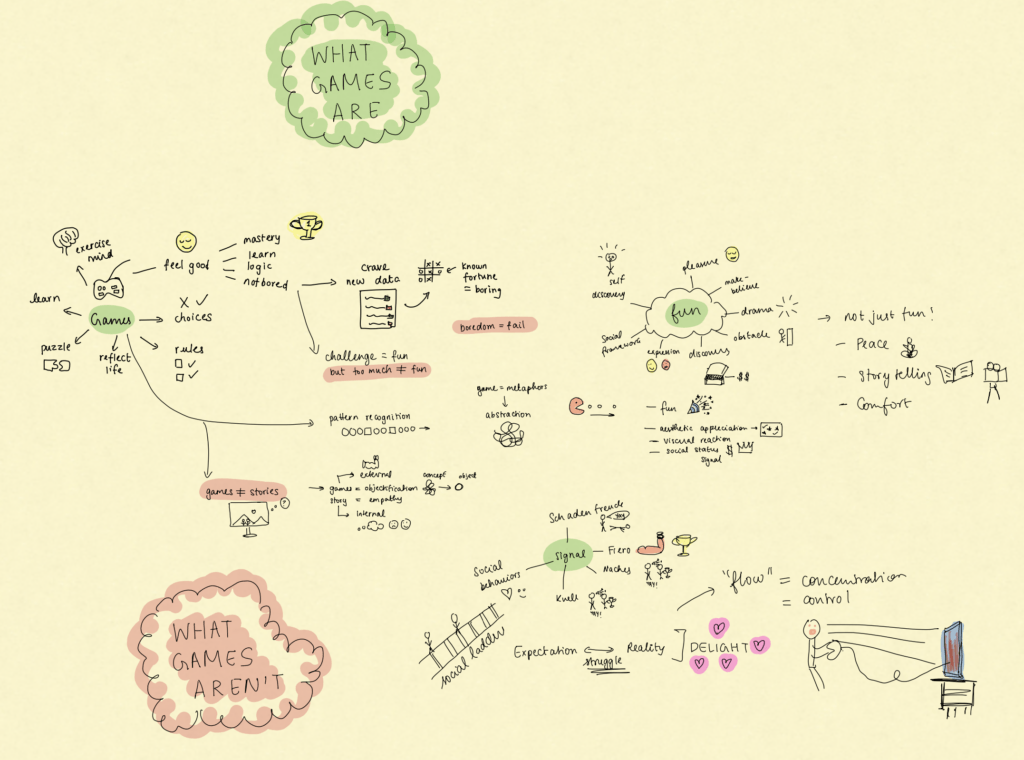 WHAT
GAMES
ARE
exercise
mind
feel good
mastery
learn
logic
not bored
crave
new data
known
fortune
= boring
learn
Games
choices
puzzle
reflect
life
rules
boredom = fail
challenge = fun
but too much ≠ fun
pattern recognition
game = metaphors
abstraction
games ≠ stories
external
games = objectification
story = empathy
internal
concept
object
self
discovery
pleasure
make-
believe
fun
drama
obstacle
social
framework
expression
discovery
$$
fun
aesthetic appreciation
visceral reaction
social status
signal
$
not just fun!
- Peace
- Storytelling
- Comfort
WHAT
GAMES
AREN'T
Schadenfreude
signal
Fiero
Naches
Kvell
YAY!
YAY!
social
behaviors
social ladder
Expectation
struggle
Reality
DELIGHT
"flow" = concentration
= control